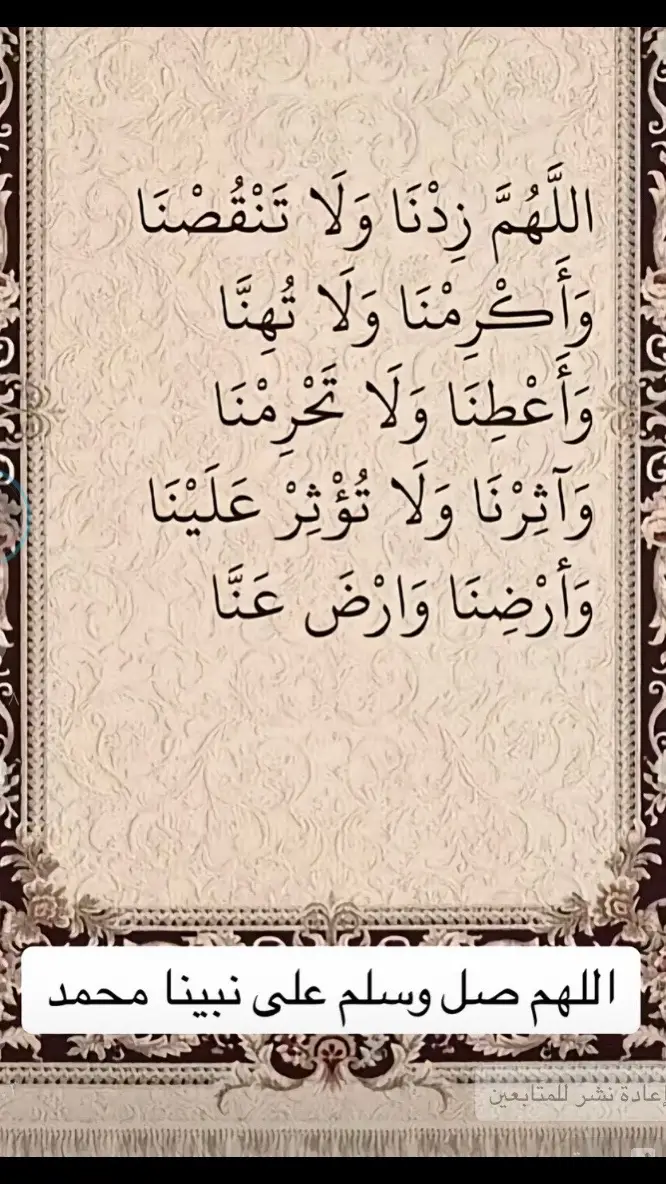 اللَّهُمَّ زِدْنَا وَلَا تَنْقُصْنَا
وَأَكْرِمْنَا وَلَا تُهِنَّا
وَأَعْطِنَا وَلَا تَحْرِمْنَا
وَآثِرْنَا وَلَا تُؤْثِرْ عَلَيْنَا
وَأَرْضِنَا وَارْضَ عَنَّا
اللهم صل وسلم على نبينا محمد
إعادة نشر للمتابعين